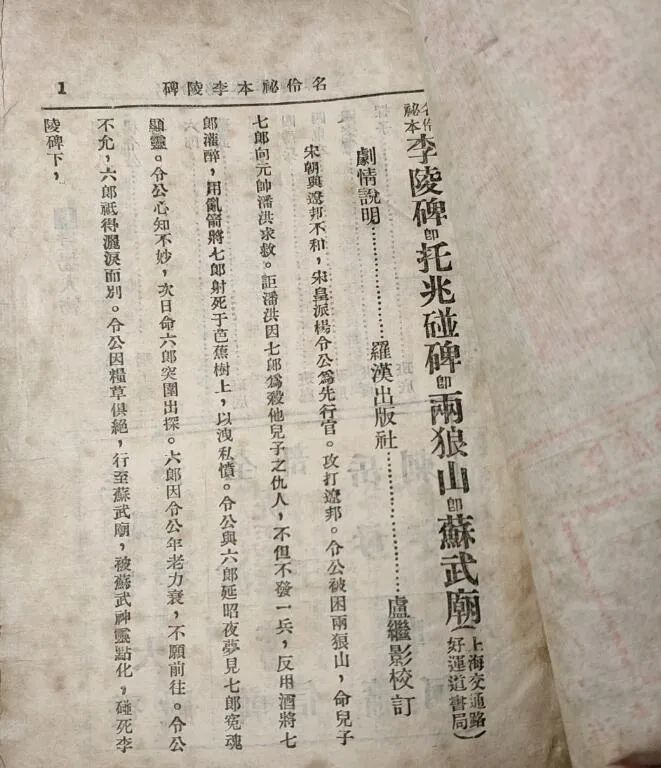 1
名伶祕本李陵碑
名伶祕本李陵碑即托兆碰碑即兩狼山即蘇武廟(上海交通路好運道書局)
劇情說明……羅漢出版社……盧繼影校訂
宋朝與遼邦不和,宋皇派楊令公爲先行官。攻打遼邦。令公被困兩狼山,命兒子
七郎向元帥潘洪求救。詎潘洪因七郎爲殺他兒子之仇人,不但不發一兵,反用酒將七
郎灌醉,用亂箭將七郎射死于芭蕉樹上,以洩私憤。令公與六郎延昭夜夢見七郎寃魂
顯靈。令公心知不妙,次日命六郎突圍出探。六郎因令公年老力衰,不願前往。令公
不允,六郎祇得灑淚而別。令公因糧草俱絕,行至蘇武廟,被蘇武神靈點化,碰死李
陵碑下,